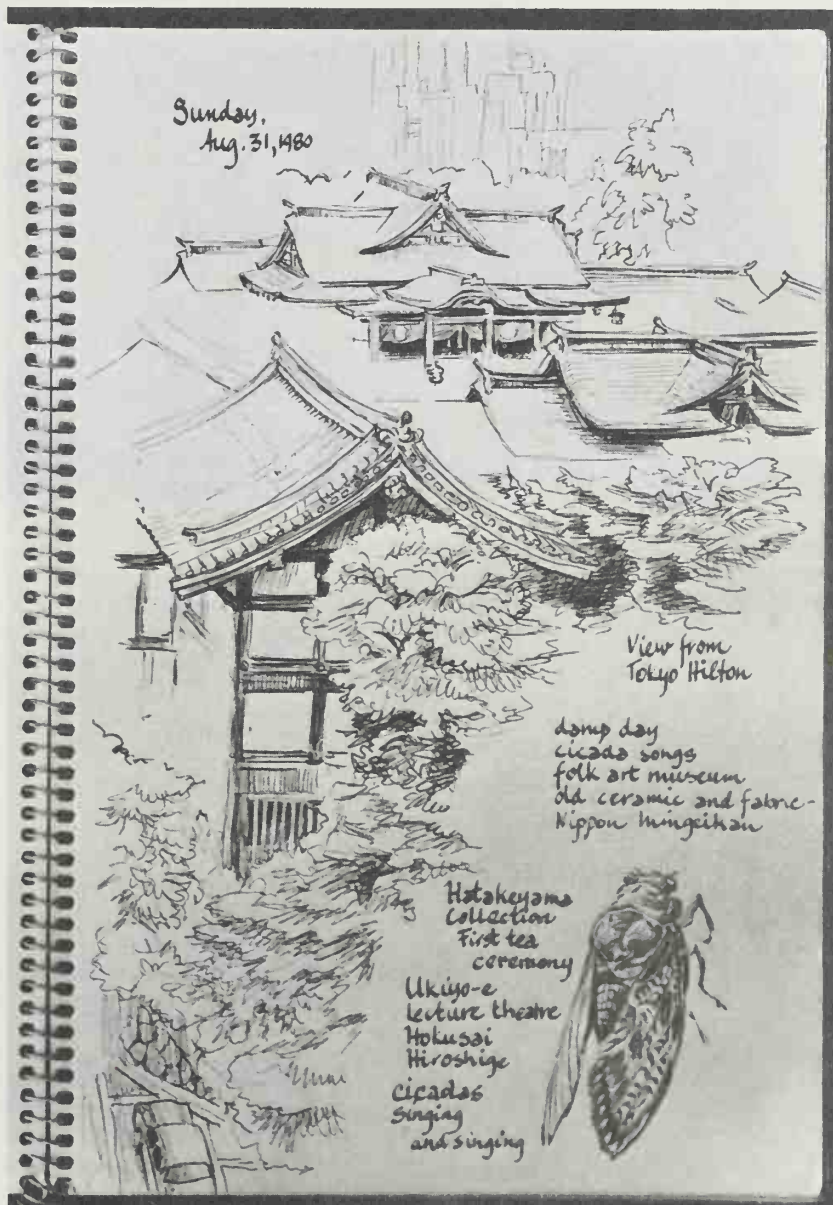 Sunday,
Aug. 31, 1980
View from
Tokyo Hilton
damp day
cicada songs
folk art museum
old ceramic and fabric-
Nippon Mingeikan
Hatakeyama
Collection
First tea
ceremony
Ukiyo-e
Lecture theatre
Hokusai
Hiroshige
cicadas
singing
and singing